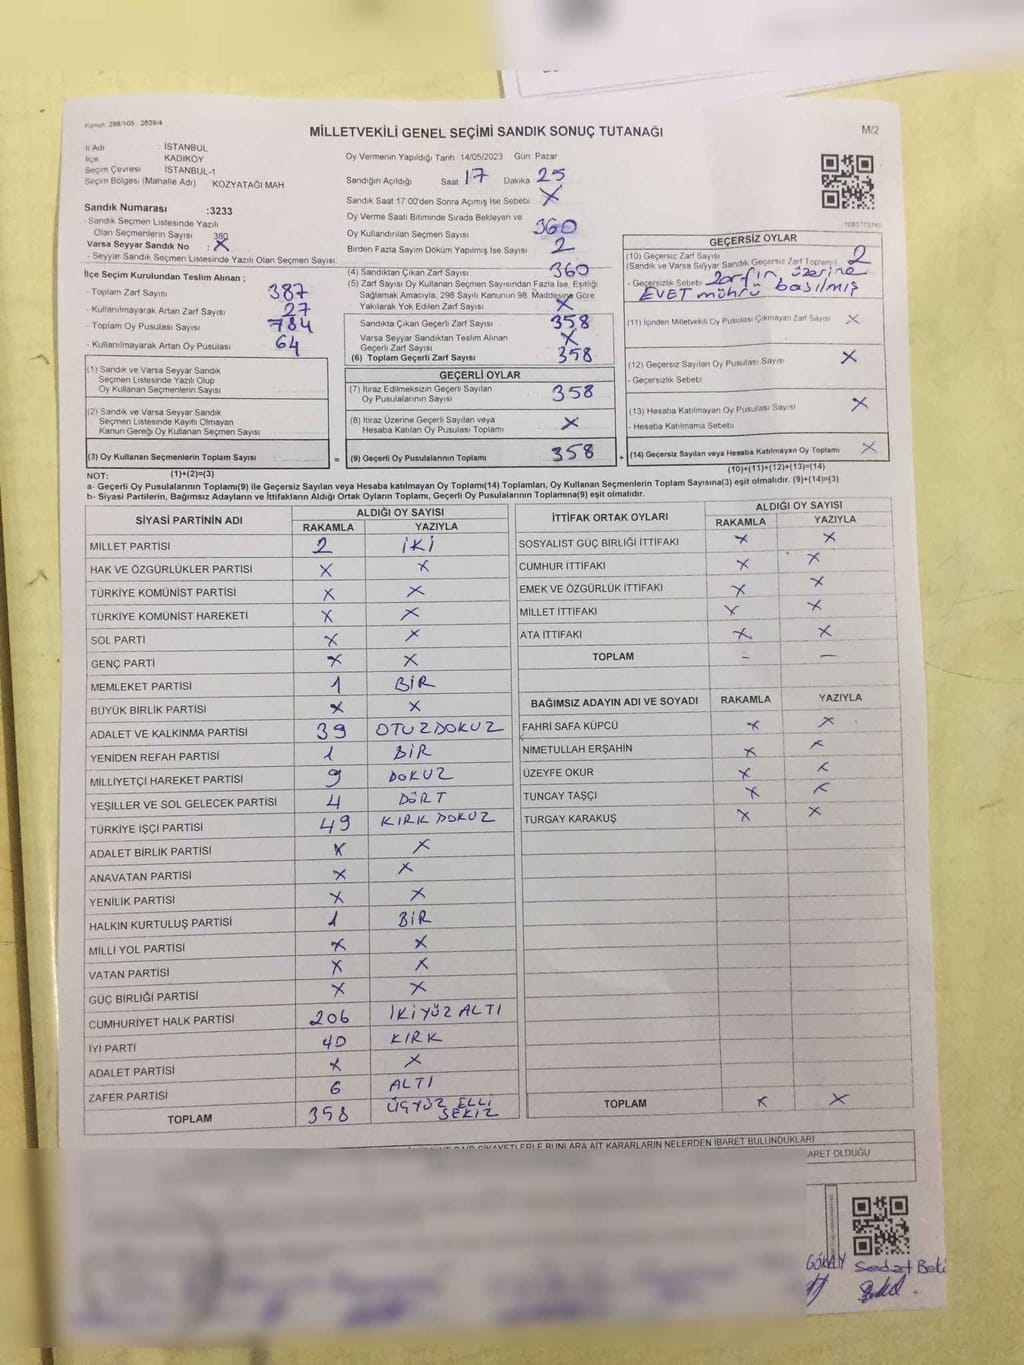 Kanun 298/105 2839/4
MİLLETVEKİLİ GENEL SEÇİMİ SANDIK SONUÇ TUTANAĞI
M/2
İl Adı : İSTANBUL
İlçe KADIKÖY
Seçim Çevresi İSTANBUL-1
Seçim Bölgesi (Mahalle Adı) KOZYATAĞI MAH
Sandık Numarası :3233
- Sandık Seçmen Listesinde Yazılı
Olan Seçmenlerin Sayısı 380
Varsa Seyyar Sandık No : X
- Seyyar Sandık Seçmen Listesinde Yazılı Olan Seçmen Sayısı
İlçe Seçim Kurulundan Teslim Alınan ;
- Toplam Zarf Sayısı 387
- Kullanılmayarak Artan Zarf Sayısı 27
- Toplam Oy Pusulası Sayısı 784
- Kullanılmayarak Artan Oy Pusulası 64
(1) Sandık ve Varsa Seyyar Sandık
Seçmen Listesinde Yazılı Olup
Oy Kullanan Seçmenlerin Sayısı
(2) Sandık ve Varsa Seyyar Sandık
Seçmen Listesinde Kayıtlı Olmayan
Kanun Gereği Oy Kullanan Seçmen Sayısı
(3) Oy Kullanan Seçmenlerin Toplam Sayısı
Oy Vermenin Yapıldığı Tarih :14/05/2023 Gün Pazar
Sandığın Açıldığı Saat 17 Dakika 25
Sandık Saat 17.00'den Sonra Açılmış İse Sebebi X
Oy Verme Saati Bitiminde Sırada Bekleyen ve
Oy Kullandırılan Seçmen Sayısı 360
Birden Fazla Sayım Döküm Yapılmış İse Sayısı 2
(4) Sandıktan Çıkan Zarf Sayısı 360
(5) Zarf Sayısı Oy Kullanan Seçmen Sayısından Fazla İse, Eşitliği
Sağlamak Amacıyla; 298 Sayılı Kanunun 98. Maddesine Göre
Yakılarak Yok Edilen Zarf Sayısı X
Sandıkta Çıkan Geçerli Zarf Sayısı 358
Varsa Seyyar Sandıktan Teslim Alınan
Geçerli Zarf Sayısı X
(6) Toplam Geçerli Zarf Sayısı 358
GEÇERLİ OYLAR
(7) İtiraz Edilmeksizin Geçerli Sayılan
Oy Pusulalarının Sayısı 358
(8) İtiraz Üzerine Geçerli Sayılan veya
Hesaba Katılan Oy Pusulası Toplamı X
= (9) Geçerli Oy Pusulalarının Toplamı 358
GEÇERSİZ OYLAR
(10) Geçersiz Zarf Sayısı
(Sandık ve Varsa Seyyar Sandık Geçersiz Zarf Toplamı) 2
- Geçersizlik Sebebi Zarfın üzerine
EVET mührü basılmış
(11) İçinden Milletvekili Oy Pusulası Çıkmayan Zarf Sayısı X
(12) Geçersiz Sayılan Oy Pusulası Sayısı X
- Geçersizlik Sebebi
(13) Hesaba Katılmayan Oy Pusulası Sayısı X
- Hesaba Katılmama Sebebi
+ (14) Geçersiz Sayılan veya Hesaba Katılmayan Oy Toplamı X
NOT: (1)+(2)=(3) (10)+(11)+(12)+(13)=(14)
a- Geçerli Oy Pusulalarının Toplamı(9) ile Geçersiz Sayılan veya Hesaba katılmayan Oy Toplamı(14) Toplamları, Oy Kullanan Seçmenlerin Toplam Sayısına(3) eşit olmalıdır. (9)+(14)=(3)
b- Siyasi Partilerin, Bağımsız Adayların ve İttifakların Aldığı Ortak Oyların Toplamı, Geçerli Oy Pusulalarının Toplamına(9) eşit olmalıdır.
SİYASİ PARTİNİN ADI ALDIĞI OY SAYISI
RAKAMLA YAZIYLA
MİLLET PARTİSİ 2 İKİ
HAK VE ÖZGÜRLÜKLER PARTİSİ X X
TÜRKİYE KOMÜNİST PARTİSİ X X
TÜRKİYE KOMÜNİST HAREKETİ X X
SOL PARTİ X X
GENÇ PARTİ X X
MEMLEKET PARTİSİ 1 BİR
BÜYÜK BİRLİK PARTİSİ X X
ADALET VE KALKINMA PARTİSİ 39 OTUZDOKUZ
YENİDEN REFAH PARTİSİ 1 BİR
MİLLİYETÇİ HAREKET PARTİSİ 9 DOKUZ
YEŞİLLER VE SOL GELECEK PARTİSİ 4 DÖRT
TÜRKİYE İŞÇİ PARTİSİ 49 KIRK DOKUZ
ADALET BİRLİK PARTİSİ X X
ANAVATAN PARTİSİ X X
YENİLİK PARTİSİ X X
HALKIN KURTULUŞ PARTİSİ 1 BİR
MİLLİ YOL PARTİSİ X X
VATAN PARTİSİ X X
GÜÇ BİRLİĞİ PARTİSİ X X
CUMHURİYET HALK PARTİSİ 206 İKİYÜZ ALTI
İYİ PARTİ 40 KIRK
ADALET PARTİSİ X X
ZAFER PARTİSİ 6 ALTI
TOPLAM 358 ÜÇYÜZ ELLİ
SEKİZ
İTTİFAK ORTAK OYLARI ALDIĞI OY SAYISI
RAKAMLA YAZIYLA
SOSYALİST GÜÇ BİRLİĞİ İTTİFAKI X X
CUMHUR İTTİFAKI X X
EMEK VE ÖZGÜRLÜK İTTİFAKI X X
MİLLET İTTİFAKI X X
ATA İTTİFAKI X X
TOPLAM - -
BAĞIMSIZ ADAYIN ADI VE SOYADI RAKAMLA YAZIYLA
FAHRİ SAFA KÜPCÜ X X
NİMETULLAH ERŞAHİN X X
ÜZEYFE OKUR X X
TUNCAY TAŞÇI X X
TURGAY KARAKUŞ X X
TOPLAM X X
BUNLARA AİT KARARLARIN NELERDEN İBARET BULUNDUKLARI
ARET OLDUĞU
GÖKAY Sedat Beki